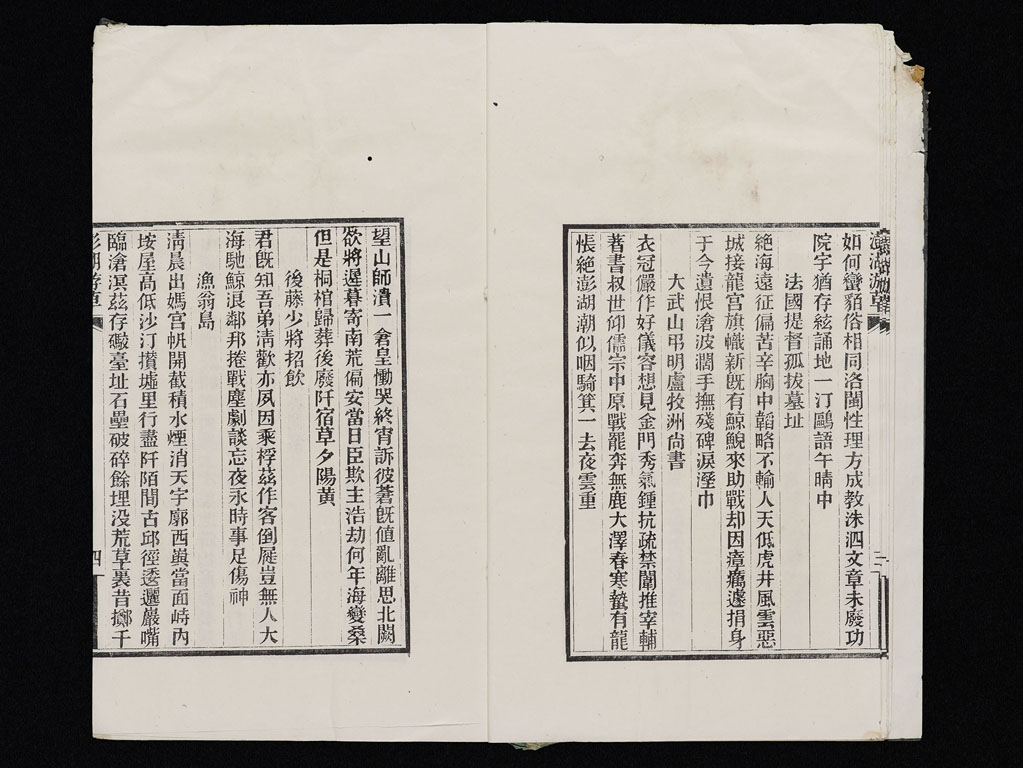 澎湖游草
如何蠻貊俗相同洛閩性理方成教洙泗文章未廢功
院宇猶存絃誦地一汀鷗語午晴中
法國提督孤拔墓址
絶海遠征偏苦辛胸中韜略不輸人天低虎井風雲惡
城接龍宮旗幟新旣有鯨鯢來助戰却因瘴癘遽捐身
于今遺恨滄波濶手撫殘碑淚溼巾
大武山弔明盧牧洲尚書
衣冠儼作好儀容想見金門秀氣鍾抗疏禁闈推宰輔
著書叔世仰儒宗中原戰罷奔無鹿大澤春寒蟄有龍
悵絶彭湖潮似咽騎箕一去夜雲重
望山師潰一倉皇慟哭終宵訴彼蒼旣値亂離思北闕
欲將遲暮寄南荒偏安當日臣欺主浩劫何年海變桑
但是桐棺歸葬後廢阡宿草夕陽黄
後藤少將招飲
君旣知吾弟淸歡亦夙因乘桴茲作客倒屣豈無人大
海馳鯨浪鄰邦捲戰塵劇談忘夜永時事足傷神
漁翁島
淸晨出媽宮帆開截積水煙消天宇廓西㠘當面峙內
垵屋高低沙汀攅墟里行盡阡陌間古邱徑逶邐巖嘴
臨滄溟茲存礮臺址石壘破碎餘埋没荒草裏昔擲千
四